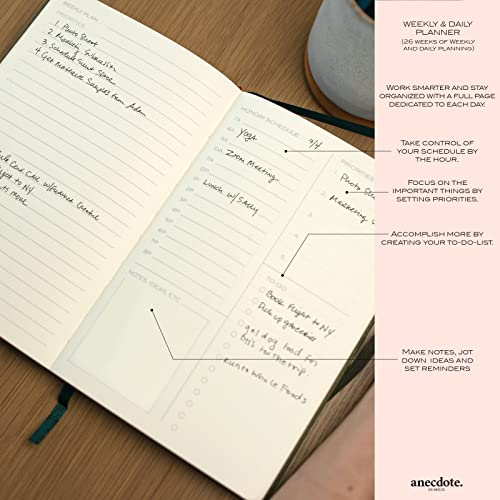 WEEKLY PLAN
PRIORITIES
1. Photo Shoot
2. Marketing
3. Schedule Shoot Space
4. Get Materials Samples From Adam
Flight to NY
MONDAY SCHEDULE
9/4
7A
8A
Yoga
9A
10A
Zoom Meeting
11A
12P
1P
Lunch w/ Sally
2P
3P
4P
5P
6P
7P
8P
9P
PRIORITIES
Photo Shoot
2.
Marketing
3.
NOTES, IDEAS, ETC.
TO-DO
Book Flight to NY
Pick up groceries
get dog food for
for the trip
Run to Whole Foods
WEEKLY & DAILY
PLANNER
(26 WEEKS OF WEEKLY
AND DAILY PLANNING)
WORK SMARTER AND STAY
ORGANIZED WITH A FULL PAGE
DEDICATED TO EACH DAY.
TAKE CONTROL OF
YOUR SCHEDULE BY
THE HOUR.
FOCUS ON THE
IMPORTANT THINGS BY
SETTING PRIORITIES.
ACCOMPLISH MORE BY
CREATING YOUR TO-DO-LIST.
MAKE NOTES, JOT
DOWN IDEAS AND
SET REMINDERS
anecdote.